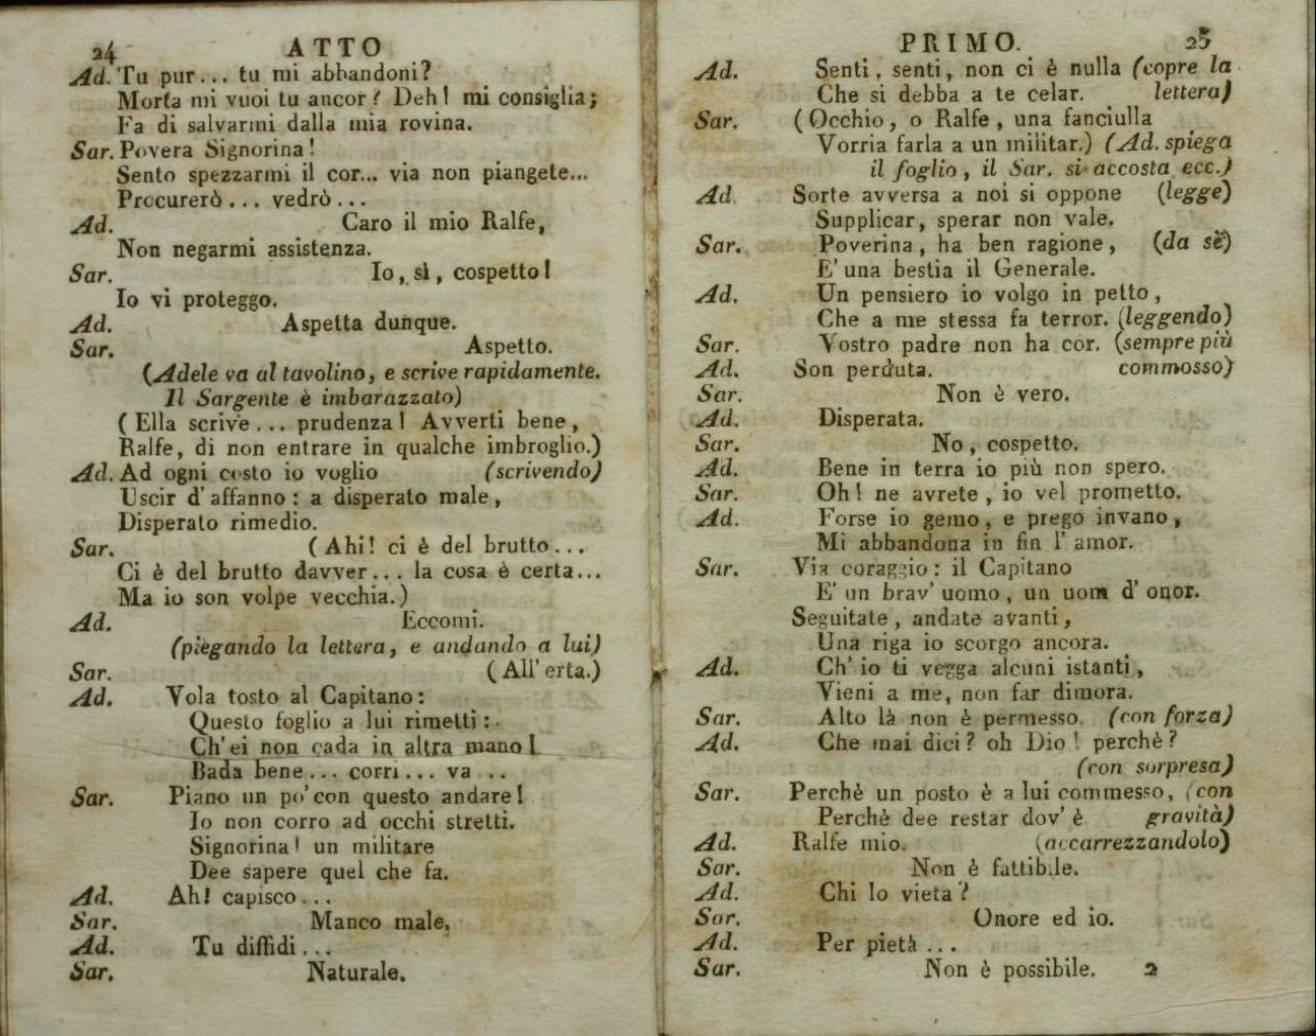 24 ATTO
Ad. Tu pur... tu mi abbandoni?
Morta mi vuoi tu ancor? Deh! mi consiglia;
Fa di salvarmi dalla mia rovina.
Sar. Povera Signorina!
Sento spezzarmi il cor... via non piangete...
Procurerò... vedrò...
Ad. Caro il mio Ralfe,
Non negarmi assistenza.
Sar. Io, sì, cospetto!
Io vi proteggo.
Ad. Aspetta dunque.
Sar. Aspetto.
(Adele va al tavolino, e scrive rapidamente.
Il Sargente è imbarazzato)
(Ella scrive... prudenza! Avverti bene,
Ralfe, di non entrare in qualche imbroglio.)
Ad. Ad ogni costo io voglio (scrivendo)
Uscir d'affanno: a disperato male,
Disperato rimedio.
Sar. (Ahi! ci è del brutto...
Ci è del brutto davver... la cosa è certa...
Ma io son volpe vecchia.)
Ad. Eccomi.
(piegando la lettera, e andando a lui)
Sar. (All'erta.)
Ad. Vola tosto al Capitano:
Questo foglio a lui rimetti:
Ch'ei non cada in altra mano!
Bada bene... corri... va...
Sar. Piano un po' con questo andare!
Io non corro ad occhi stretti.
Signorina! un militare
Dee sapere quel che fa.
Ad. Ah! capisco...
Sar. Manco male.
Ad. Tu diffidi...
Sar. Naturale.
PRIMO. 25
Ad. Senti, senti, non ci è nulla (copre la
Che si debba a te celar. lettera)
Sar. (Occhio, o Ralfe, una fanciulla
Vorria farla a un militar.) (Ad. spiega
il foglio, il Sar. si accosta ecc.)
Ad. Sorte avversa a noi si oppone (legge)
Supplicar, sperar non vale.
Sar. Poverina, ha ben ragione, (da sè)
E' una bestia il Generale.
Ad. Un pensiero io volgo in petto,
Che a me stessa fa terror. (leggendo)
Sar. Vostro padre non ha cor. (sempre più
Ad. Son perduta. commosso)
Sar. Non è vero.
Ad. Disperata.
Sar. No, cospetto.
Ad. Bene in terra io più non spero.
Sar. Oh! ne avrete, io vel prometto.
Ad. Forse io gemo, e prego invano,
Mi abbandona in fin l'amor.
Sar. Via coraggio: il Capitano
E' un brav'uomo, un uom d'onor.
Seguitate, andate avanti,
Una riga io scorgo ancora.
Ad. Ch'io ti vegga alcuni istanti,
Vieni a me, non far dimora.
Sar. Alto là non è permesso (con forza)
Ad. Che mai dici? oh Dio! perchè?
(con sorpresa)
Sar. Perchè un posto è a lui commesso, (con
Perchè dee restar dov'è gravità)
Ad. Ralfe mio. (accarezzandolo)
Sar. Non è fattibile.
Ad. Chi lo vieta?
Sar. Onore ed io.
Ad. Per pietà...
Sar. Non è possibile. 2